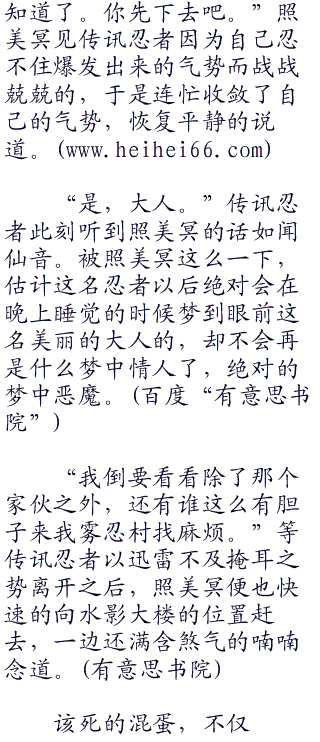 知道了。你先下去吧。”照
美冥见传讯忍者因为自己忍
不住爆发出来的气势而战战
兢兢的，于是连忙收敛了自
己的气势，恢复平静的说
道。(www.heihei66.com)
“是，大人。”传讯忍
者此刻听到照美冥的话如闻
仙音。被照美冥这么一下，
估计这名忍者以后绝对会在
晚上睡觉的时候梦到眼前这
名美丽的大人的，却不会再
是什么梦中情人了，绝对的
梦中恶魔。(百度“有意思书
院”)
“我倒要看看除了那个
家伙之外，还有谁这么有胆
子来我雾忍村找麻烦。”等
传讯忍者以迅雷不及掩耳之
势离开之后，照美冥便也快
速的向水影大楼的位置赶
去，一边还满含煞气的喃喃
念道。(有意思书院)
该死的混蛋，不仅